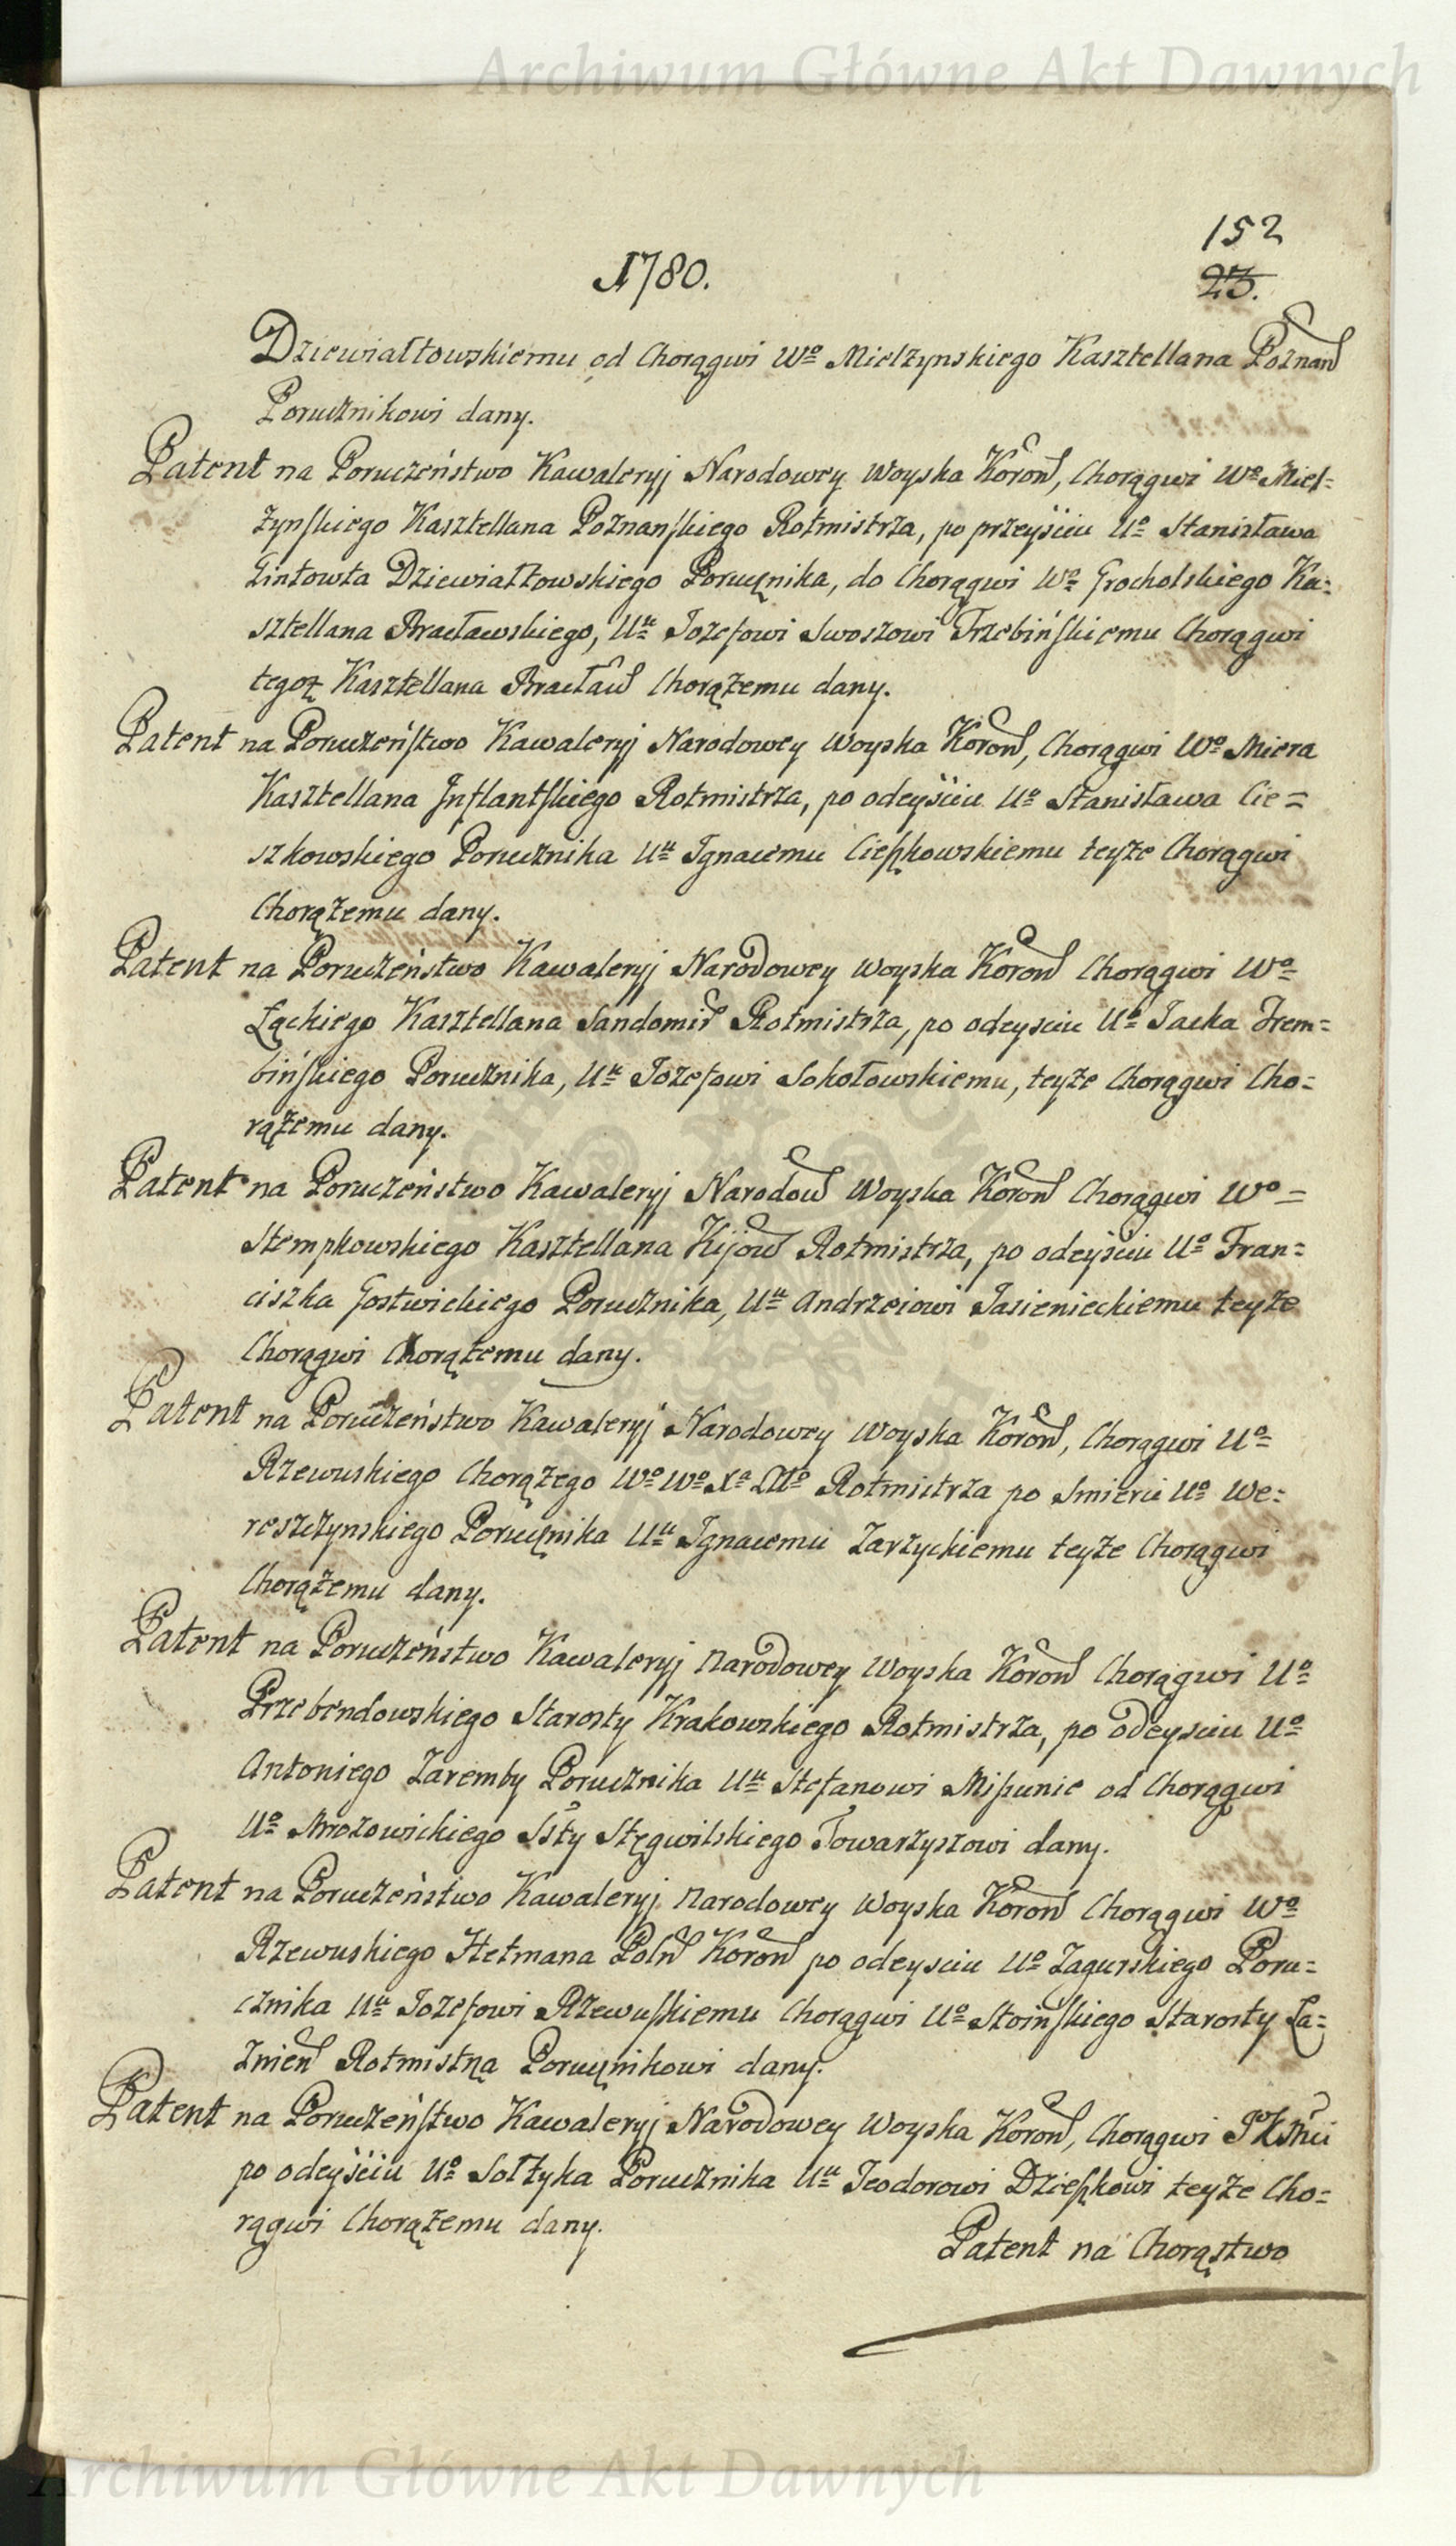 Archiwum Główne Akt Dawnych
152
23.
1780.
Dziewiałtowskiemu od Chorągwi Wo Mielzynskiego Kasztellana Poznan
Porucznikowi dany.
Patent na Poruczeństwo Kawaleryj Narodowey Woyska Koron, Chorągwi Wo Miel=
zynskiego Kasztellana Poznanskiego Rotmistrza, po przeyściu Uo Stanisława
Gintowta Dziewiałtowskiego Porucznika, do Chorągwi Wo Grocholskiego Ka=
sztellana Bracławskiego, Uu Jozefowi Swoszowi Trzebińskiemu Chorągwi
tegoż Kasztellana Bracław Chorążemu dany.
Patent na Poruczeństwo Kawaleryj Narodowey Woyska Koron, Chorągwi Wo Miera
Kasztellana Inflantskiego Rotmistrza, po odeyściu Uo Stanisława Cie=
szkowskiego Porucznika Uu Ignacemu Cieszkowskiemu teyże Chorągwi
Chorążemu dany.
Patent na Poruczeństwo Kawaleryj Narodowey Woyska Koron Chorągwi Wo
Łąckiego Kasztellana Sandomir Rotmistrza, po odeysciu Uo Jacka Trem=
bińskiego Porucznika, Uu Jozefowi Sokołowskiemu, teyże Chorągwi Cho=
rążemu dany.
Patent na Poruczeństwo Kawaleryj Narodow Woyska Koron Chorągwi Wo=
Stempkowskiego Kasztellana Kijow Rotmistrza, po odeyściu Uo Fran=
ciszka Gostwickiego Porucznika, Uu Andrzeiowi Jasienieckiemu teyże
Chorągwi Chorążemu dany.
Patent na Poruczeństwo Kawaleryj Narodowey Woyska Koron, Chorągwi Uo
Rzewuskiego Chorążego Wo Wo Xa Litto Rotmistrza po Smierci Uo We=
reszczynskiego Porucznika Uu Ignacemu Zarzyckiemu teyże Chorągwi
Chorążemu dany.
Patent na Poruczeństwo Kawaleryj Narodowey Woyska Koron Chorągwi Uo
Przebendowskiego Starosty Krakowskiego Rotmistrza, po odeysciu Uo
Antoniego Zaremby Porucznika Uu Stefanowi Missunie od Chorągwi
Uo Mrozowickiego Ssty Stęgwilskiego Towarzyszowi dany.
Patent na Poruczeństwo Kawaleryj Narodowey Woyska Koron Chorągwi Wo
Rzewuskiego Hetmana Poln Koron po odeysciu Uo Zagurskiego Poru=
cznika Uu Jozefowi Rzewuskiemu Chorągwi Uo Stoińskiego Starosty Ła=
znień Rotmistrza Porucznikowi dany.
Patent na Poruczeństwo Kawaleryj Narodowey Woyska Koron, Chorągwi
po odeyściu Uo Sołtyka Porucznika Uu Teodorowi Dzieszkowi teyże Cho=
rągwi Chorążemu dany.
Patent na Chorąstwo
Archiwum Główne Akt Dawnych